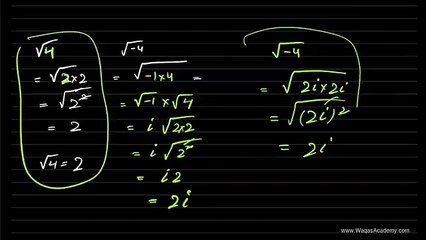 √4
= √2×2
= √2²
= 2
√4 = 2
√-4
= √-1×4 =
= √-1 × √4
= i √2×2
= i √2²
= i 2
= 2i
√-4
= √2i×2i
= √(2i)²
= 2i
www.WaqasAcademy.com